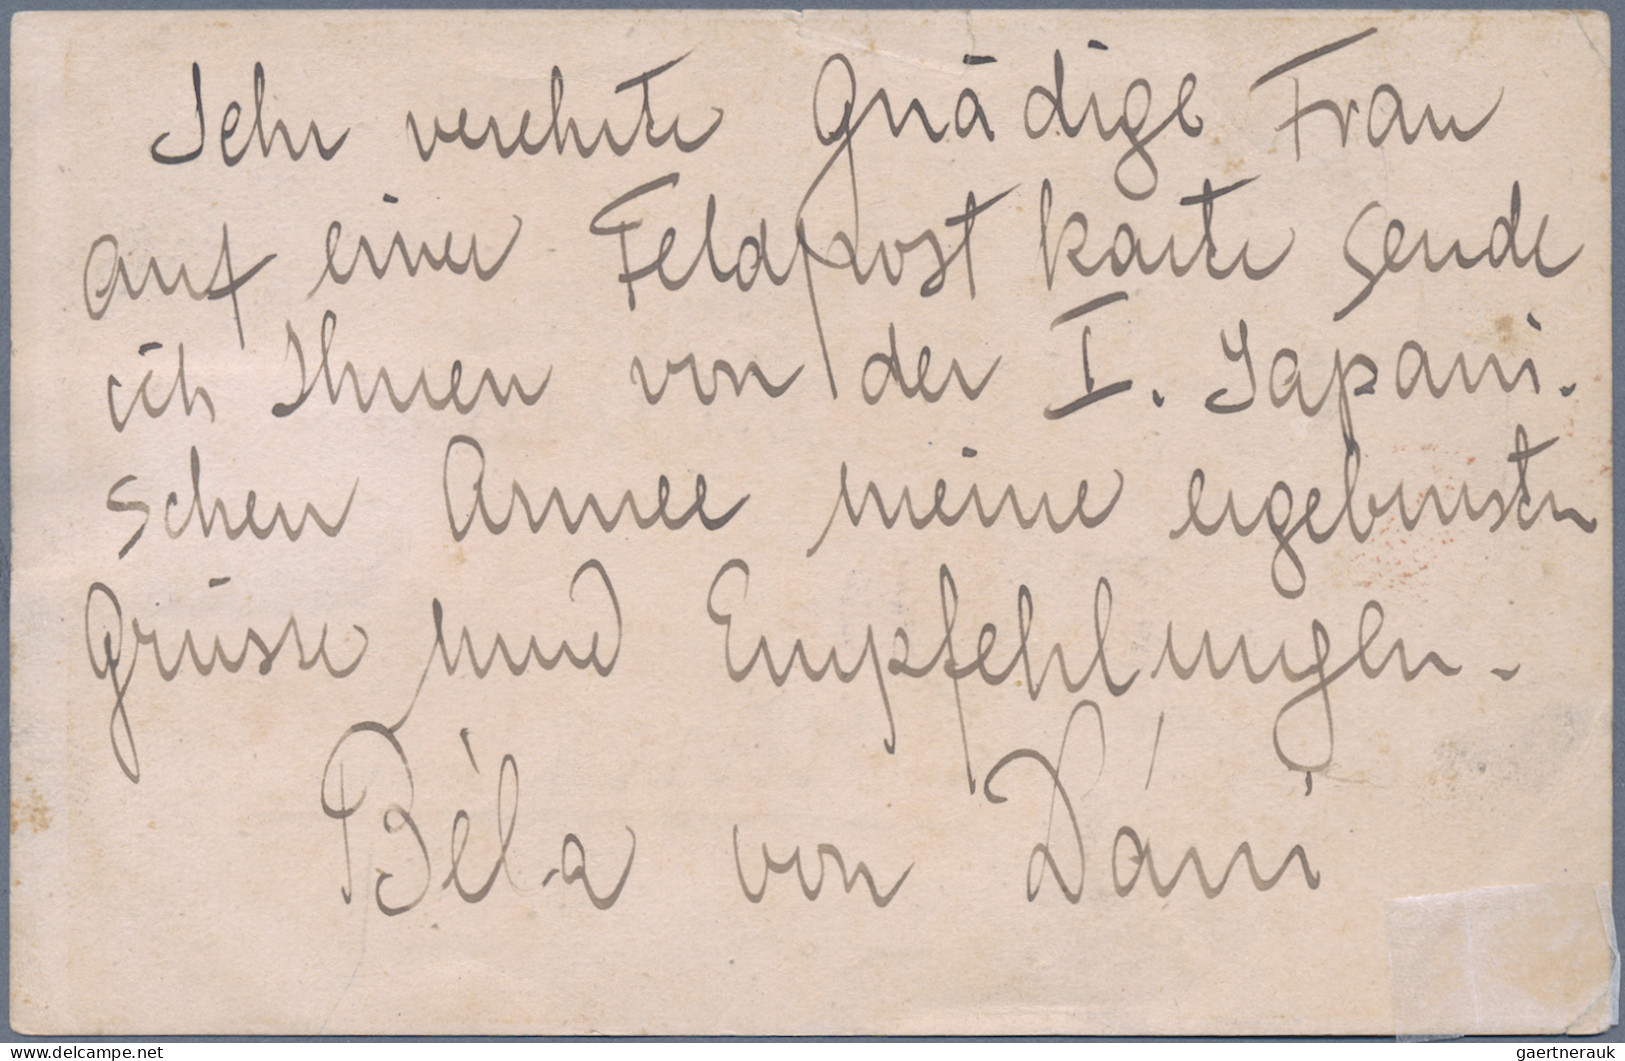 Sehr verehrte Gnädige Frau
auf einer Feldpostkarte sende
ich Ihnen von der I. Japani-
schen Armee meine ergebensten
Grüsse und Empfehlungen -
Béla von Dáni
Delcampe.net
gaertnerauk